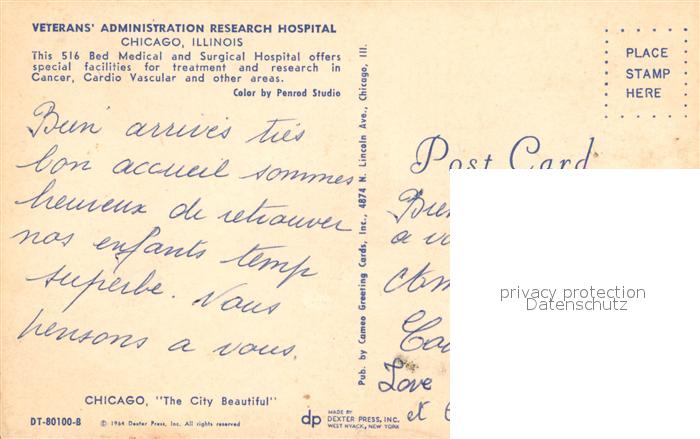 VETERANS' ADMINISTRATION RESEARCH HOSPITAL
CHICAGO, ILLINOIS
This 516 Bed Medical and Surgical Hospital offers
special facilities for treatment and research in
Cancer, Cardio Vascular and other areas.
Color by Penrod Studio
Bien arrivés très
bon accueil sommes
heureux de retrouver
nos enfants temp
superbe. Nous
pensons a vous.
CHICAGO, "The City Beautiful"
DT-80100-B
© 1964 Dexter Press, Inc. All rights reserved
Pub. by Cameo Greeting Cards, Inc., 4874 N. Lincoln Ave., Chicago, Ill.
dp
MADE BY
DEXTER PRESS, INC.
WEST NYACK, NEW YORK
PLACE
STAMP
HERE
Post Card
Bien
a vo
Am
Love
et
privacy protection
Datenschutz